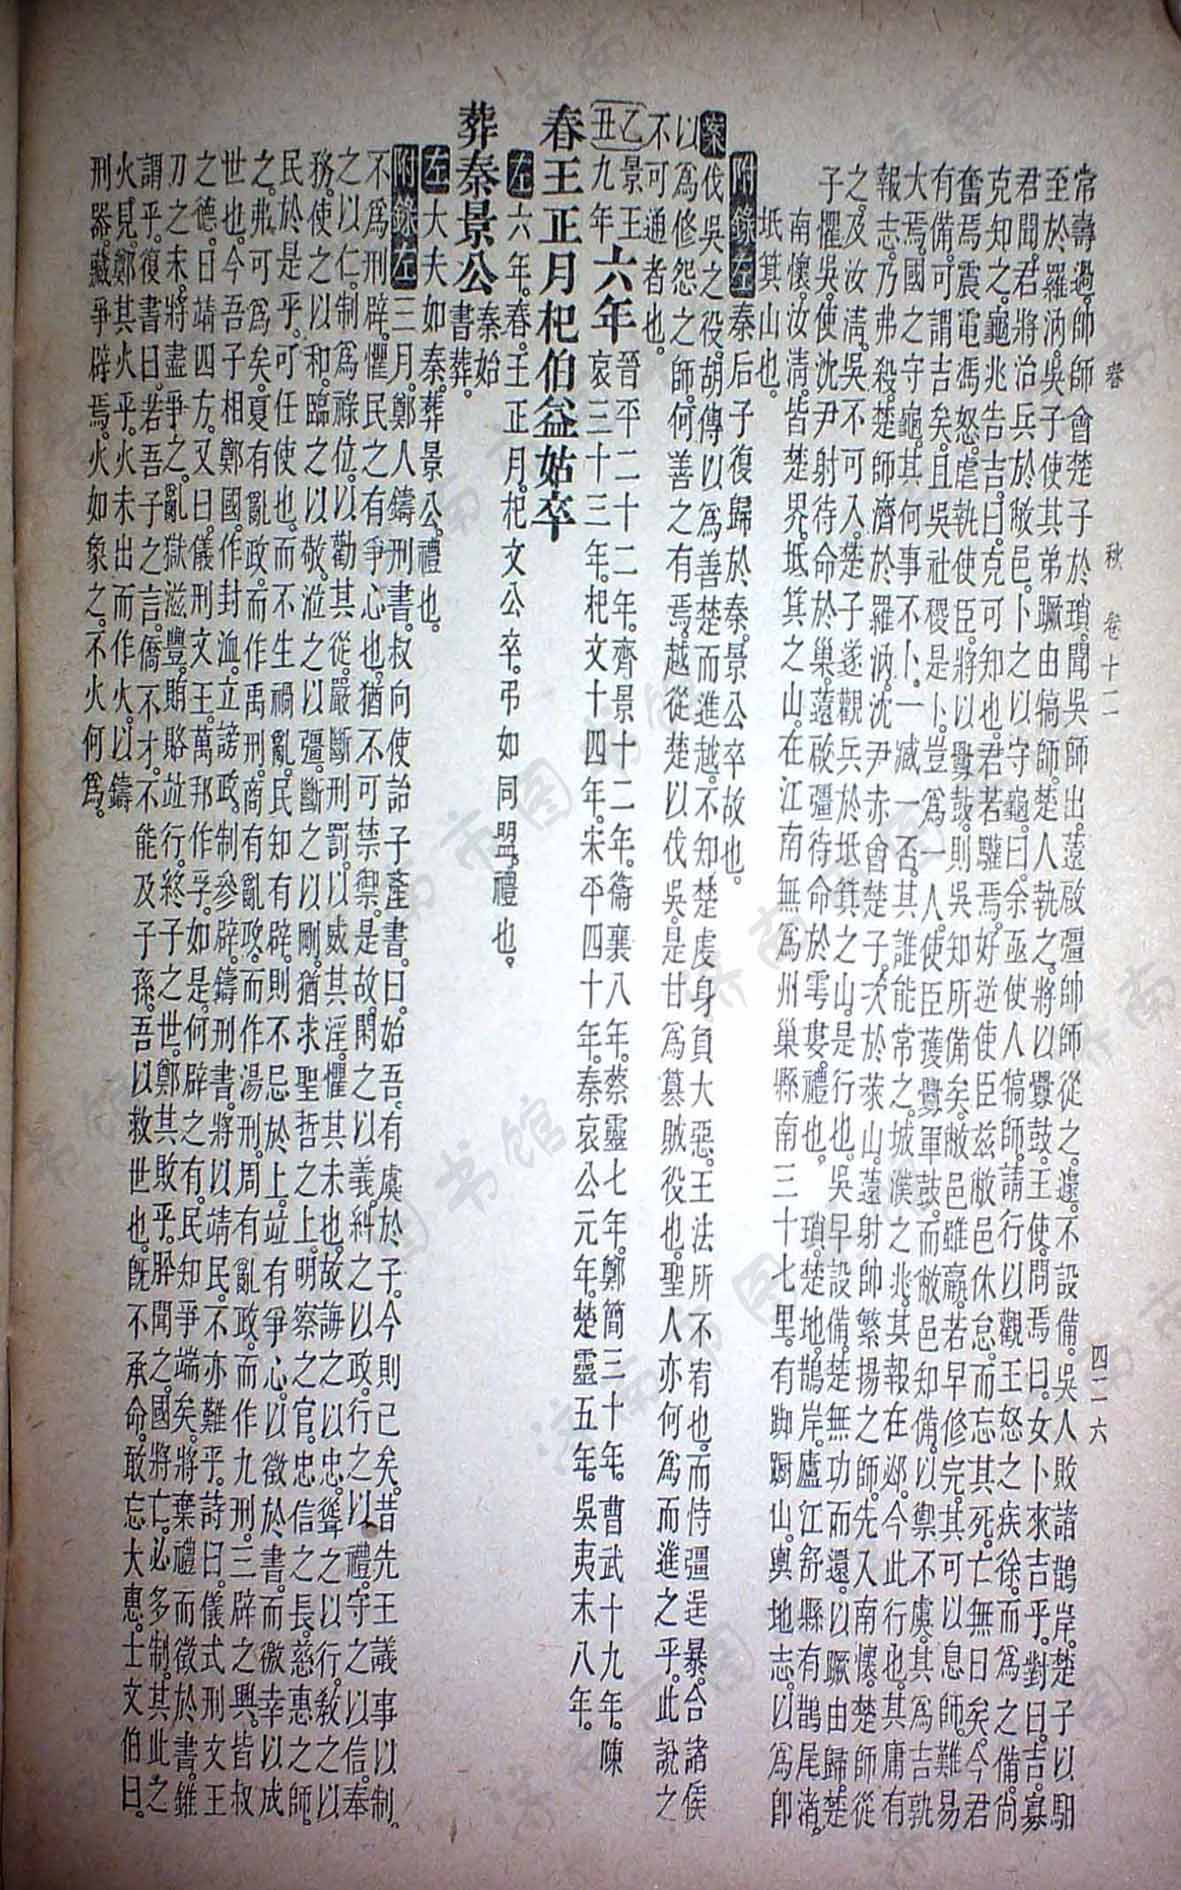 春 秋 卷十二 四二六
常壽過帥師會楚子於瑣。聞吳師出。薳啟彊帥師從之。遽不設備。吳人敗諸鵲岸。楚子以馹
至於羅汭。吳子使其弟蹶由犒師。楚人執之。將以釁鼓。王使問焉。曰。女卜來吉乎。對曰。吉。寡
君聞君將治兵於敝邑。卜之以守龜。曰。余亟使人犒師。請行以觀王怒之疾徐。而爲之備。尚
克知之。龜兆告吉。曰。克可知也。君若驩焉。好逆使臣。茲敝邑休怠。而忘其死。亡無日矣。今君
奮焉。震電馮怒。虐執使臣。將以釁鼓。則吳知所備矣。敝邑雖羸。若早修完。其可以息師。難易
有備。可謂吉矣。且吳社稷是卜。豈爲一人。使臣獲釁軍鼓。而敝邑知備。以禦不虞。其爲吉孰
大焉。國之守龜。其何事不卜。一臧一否。其誰能常之。城濮之兆。其報在邲。今此行也。其庸有
報志。乃弗殺。楚師濟於羅汭。沈尹赤會楚子。次於萊山。薳射帥繁揚之師。先入南懷。楚師從
之。及汝清。吳不可入。楚子遂觀兵於坻箕之山。是行也。吳早設備。楚無功而還。以蹶由歸。楚
子懼吳。使沈尹射待命於巢。薳啟彊待命於雩婁。禮也。 瑣。楚地。鵲岸。廬江舒縣有鵲尾渚。
南懷。汝清。皆楚界。坻箕之山。在江南無爲州巢縣南三十七里。有踟躕山。輿地志。以爲卽
坻箕山也。
附錄左秦后子復歸於秦。景公卒故也。
案伐吳之役。胡傳以爲善楚而進越。不知楚虔身負大惡。王法所不宥也。而恃彊逞暴。合諸侯
以爲修怨之師。何善之有焉。越從楚以伐吳。是甘爲篡賊役也。聖人亦何爲而進之乎。此說之
不可通者也。
乙丑景王九年 六年 晉平二十二年。齊景十二年。衞襄八年。蔡靈七年。鄭簡三十年。曹武十九年。陳
哀三十三年。杞文十四年。宋平四十年。秦哀公元年。楚靈五年。吳夷末八年。
春王正月杞伯益姑卒
左六年。春。王正月。杞文公卒。弔如同盟。禮也。
葬秦景公秦始書葬。
左大夫如秦。葬景公。禮也。
附錄左三月。鄭人鑄刑書。叔向使詒子產書。曰。始吾有虞於子。今則已矣。昔先王議事以制。
不爲刑辟。懼民之有爭心也。猶不可禁禦。是故閑之以義。糾之以政。行之以禮。守之以信。奉
之以仁。制爲祿位。以勸其從。嚴斷刑罰。以威其淫。懼其未也。故誨之以忠。聳之以行。教之以
務。使之以和。臨之以敬。涖之以彊。斷之以剛。猶求聖哲之上。明察之官。忠信之長。慈惠之師。
民於是乎可任使也。而不生禍亂。民知有辟。則不忌於上。竝有爭心。以徵於書。而徼幸以成
之。弗可爲矣。夏有亂政。而作禹刑。商有亂政。而作湯刑。周有亂政。而作九刑。三辟之興。皆叔
世也。今吾子相鄭國。作封洫。立謗政。制參辟。鑄刑書。將以靖民。不亦難乎。詩曰。儀式刑文王
之德。日靖四方。又曰。儀刑文王。萬邦作孚。如是。何辟之有。民知爭端矣。將棄禮而徵於書。錐
刀之末。將盡爭之。亂獄滋豐。賄賂竝行。終子之世。鄭其敗乎。肸聞之。國將亡。必多制。其此之
謂乎。復書曰。若吾子之言。僑不才。不能及子孫。吾以救世也。旣不承命。敢忘大惠。士文伯曰。
火見。鄭其火乎。火未出而作火。以鑄
刑器。藏爭辟焉。火如象之。不火何爲。